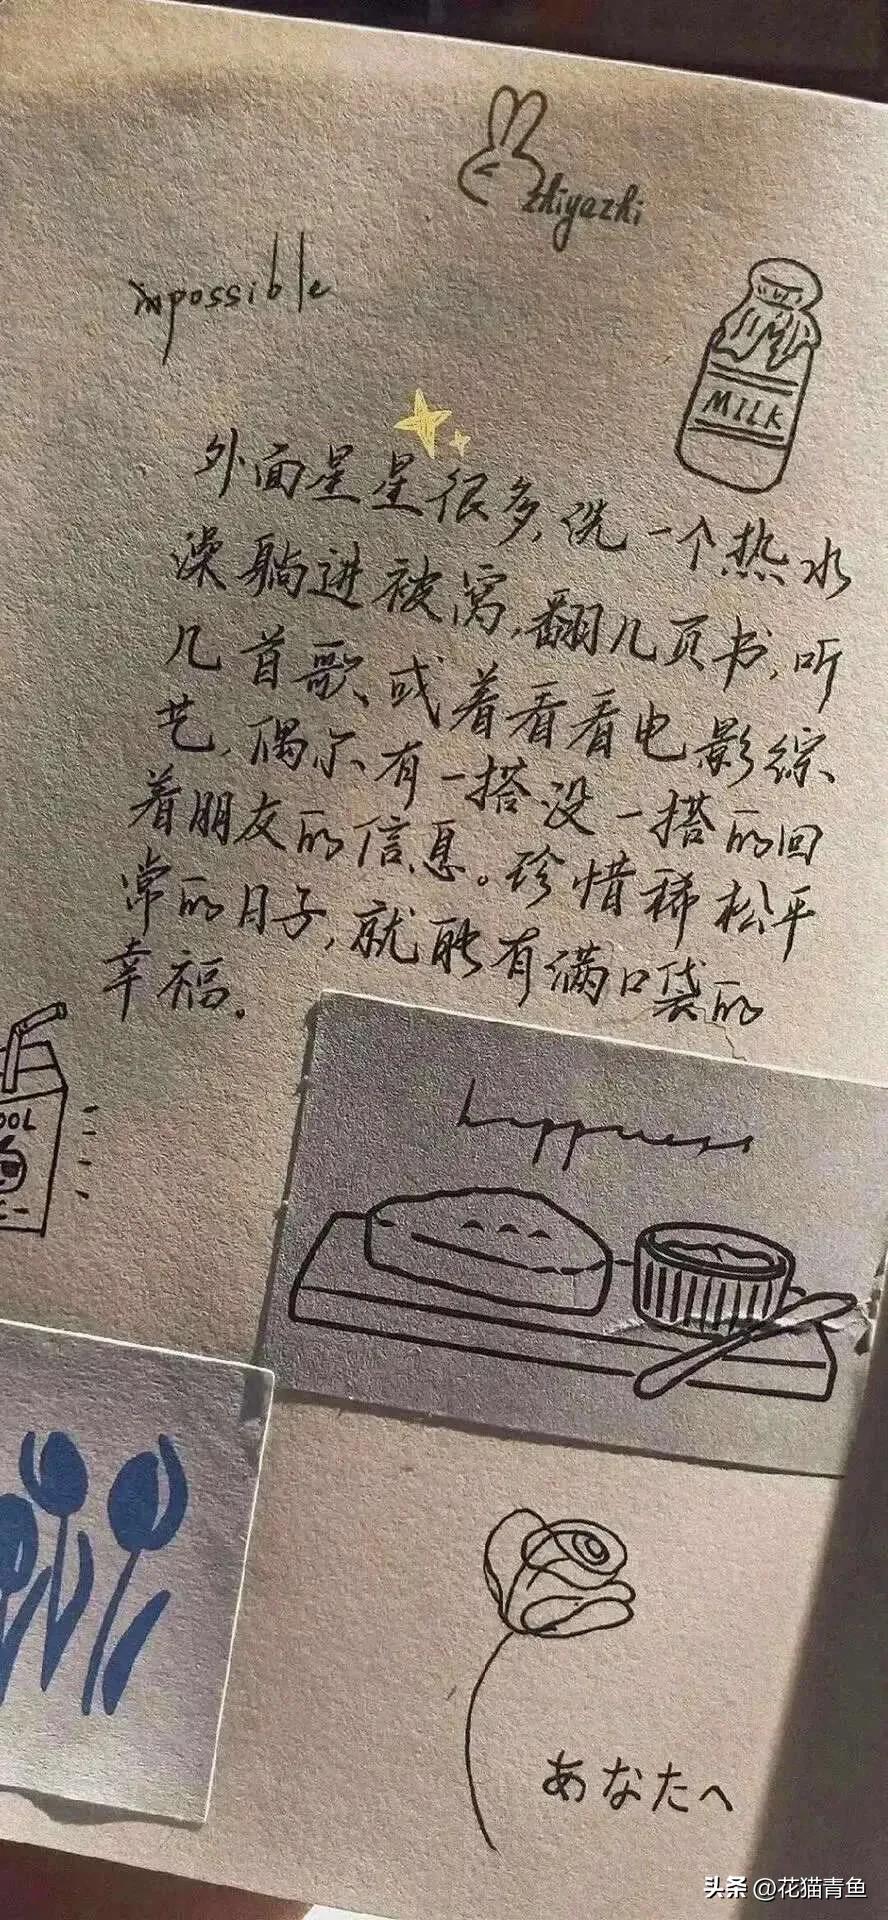 zhiyazhi
impossible
MILK
外面星星很多,洗一个热水
澡躺进被窝,翻几页书,听
几首歌、或着看看电影综
艺,偶尔有一搭没一搭的回
着朋友的信息。珍惜稀松平
常的日子,就能有满口袋的
幸福。
OOL
happness
あなたへ
头条 @花猫青鱼